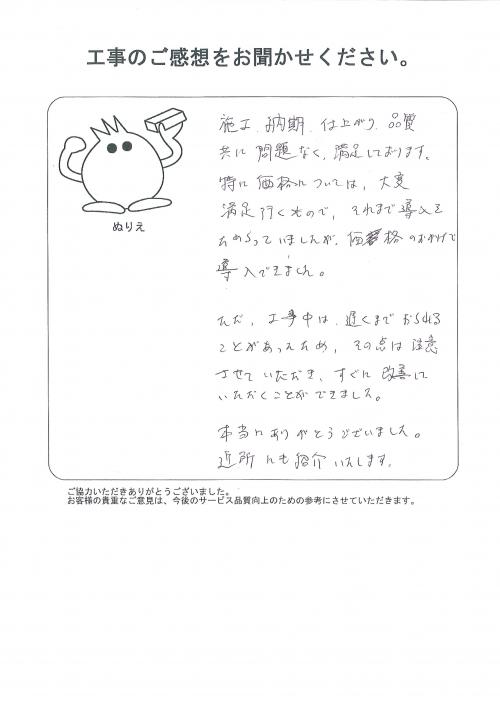 工事のご感想をお聞かせください。
ぬりえ
施工、納期、仕上がり、品質
共に問題なく、満足しております。
特に価格については、大変
満足行くもので、それまで導入を
ためらっていましたが、価格のおかげで
導入できました。
ただ、工事中は、遅くまでおられる
ことがあったため、その点は注意
させていただき、すぐに改善に
いただくことができました。
本当にありがとうございました。
近所にも紹介いたします。
ご協力いただきありがとうございました。
お客様の貴重なご意見は、今後のサービス品質向上のための参考にさせていただきます。